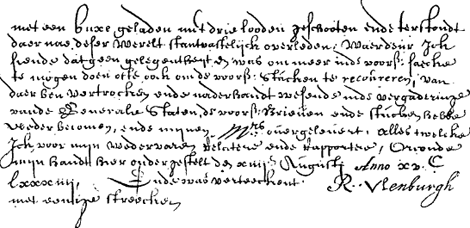 met een buxe geladen met drie looden geschooten ende terstondt
daer nae deser werelt stantvastelijck overleden: Waerdeur Ick
siende dat geen gelegentheijt en was om meer inde voors: saecke
te mogen doen ofte ook om de voors: stucken te recouvreren, van
daer ben vertrocken ende naderhandt wesende inde vergaderinge
vande Generale Staten, de voors: Brieven ende stucken hebbe
weder becomen, ende mijnen overgelevert. Alles twelcke
Ick voor mijn wedervaren Relatere ende Rapportere, Orconde
mijn handt hier onder gestelt den xiiij Augustj Anno xv. C
lxxxiiij, Ende was verteeckent R. Vlenburgh
met eenige streecken